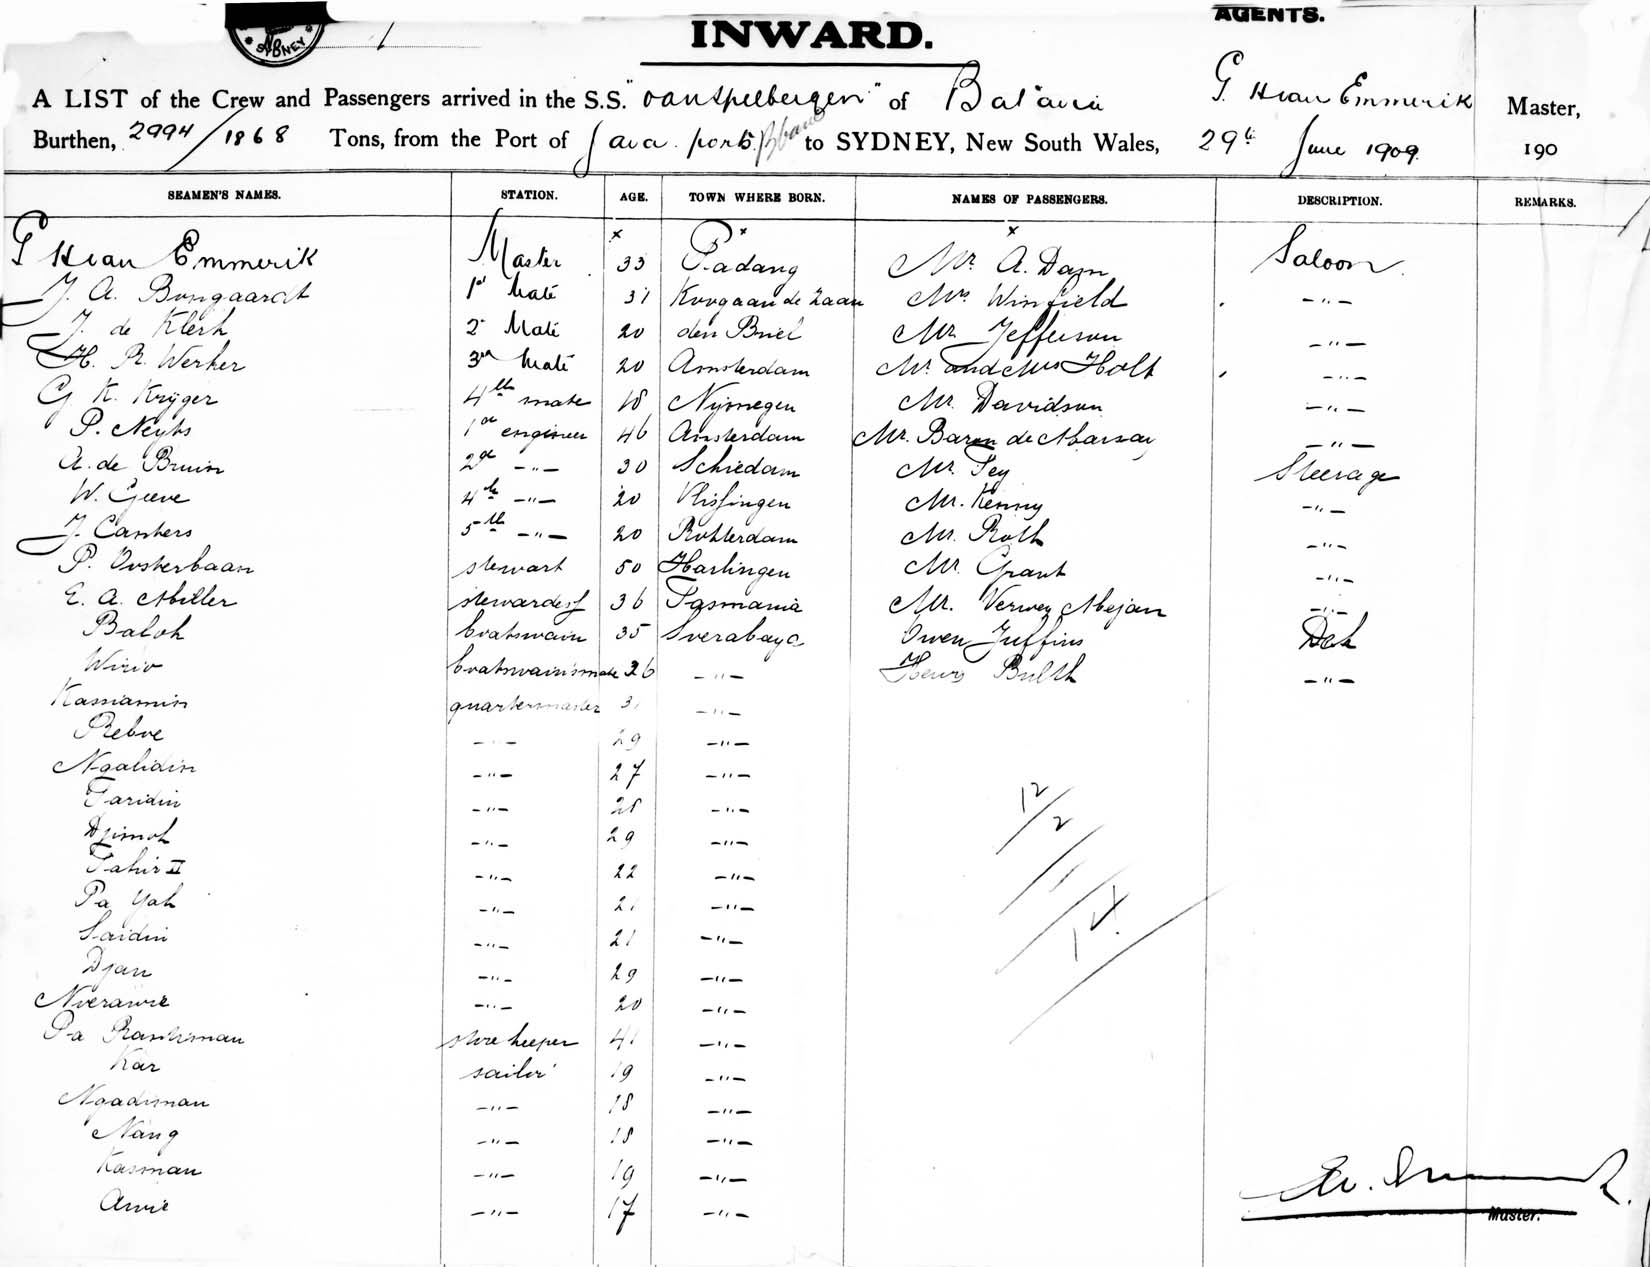 AGENTS.
SYDNEY
INWARD.
A LIST of the Crew and Passengers arrived in the S.S. "van Spilbergen" of Batavia G. H van Emmerik Master,
Burthen, 2994/1868 Tons, from the Port of Java ports. to SYDNEY, New South Wales, 29th June 1909. 190
SEAMEN'S NAMES. STATION. AGE. TOWN WHERE BORN. NAMES OF PASSENGERS. DESCRIPTION. REMARKS.
x x x
G H van Emmerik Master 33 Padang Mr. A. Dam Saloon.
J. A. Bongaardt 1st Mate 31 Koogaan de Zaan Mrs Winfield -"-
J. de Klerk 2d Mate 20 den Briel Mr. Jefferson -"-
H. R. Werker 3rd Mate 20 Amsterdam Mr. and Mrs Holt -"-
G K. Kryger 4th mate 18 Nijmegen Mr. Davidson -"-
P. Neyts 1st engineer 46 Amsterdam Mr. Baron de Marsay -"-
A. de Bruin 2d -"- 30 Schiedam Mr. Fey Steerage
W. Geeve 4th -"- 20 Vlissingen Mr. Kenny -"-
J. Canters 5th -"- 20 Rotterdam Mr. Roth -"-
P. Oosterbaan stewart 50 Harlingen Mr. Grant -"-
E. A. Miller stewardess 36 Tasmania Mr. Verwey Mejan -"-
Baloh boatswain 35 Soerabaya Owen Juffins Dek
Wirio boatswain's mate 26 -"- Henry Bulth -"-
Kassiamin quartermaster 31 -"-
Reboe -"- 29 -"-
Ngalidin -"- 27 -"-
Taridin -"- 28 -"-
Djimoh -"- 29 -"-
Tahir II -"- 22 -"-
Pa Yah -"- 21 -"-
Saidin -"- 21 -"-
Djan -"- 29 -"-
Noerawie -"- 20 -"-
Pa store keeper 41 -"-
Kar sailor 19 -"-
Ngadiman -"- 18 -"-
Nang -"- 18 -"-
Kasman -"- 19 -"-
Arvie -"- 17 -"-
12/2/1/14.
Master.